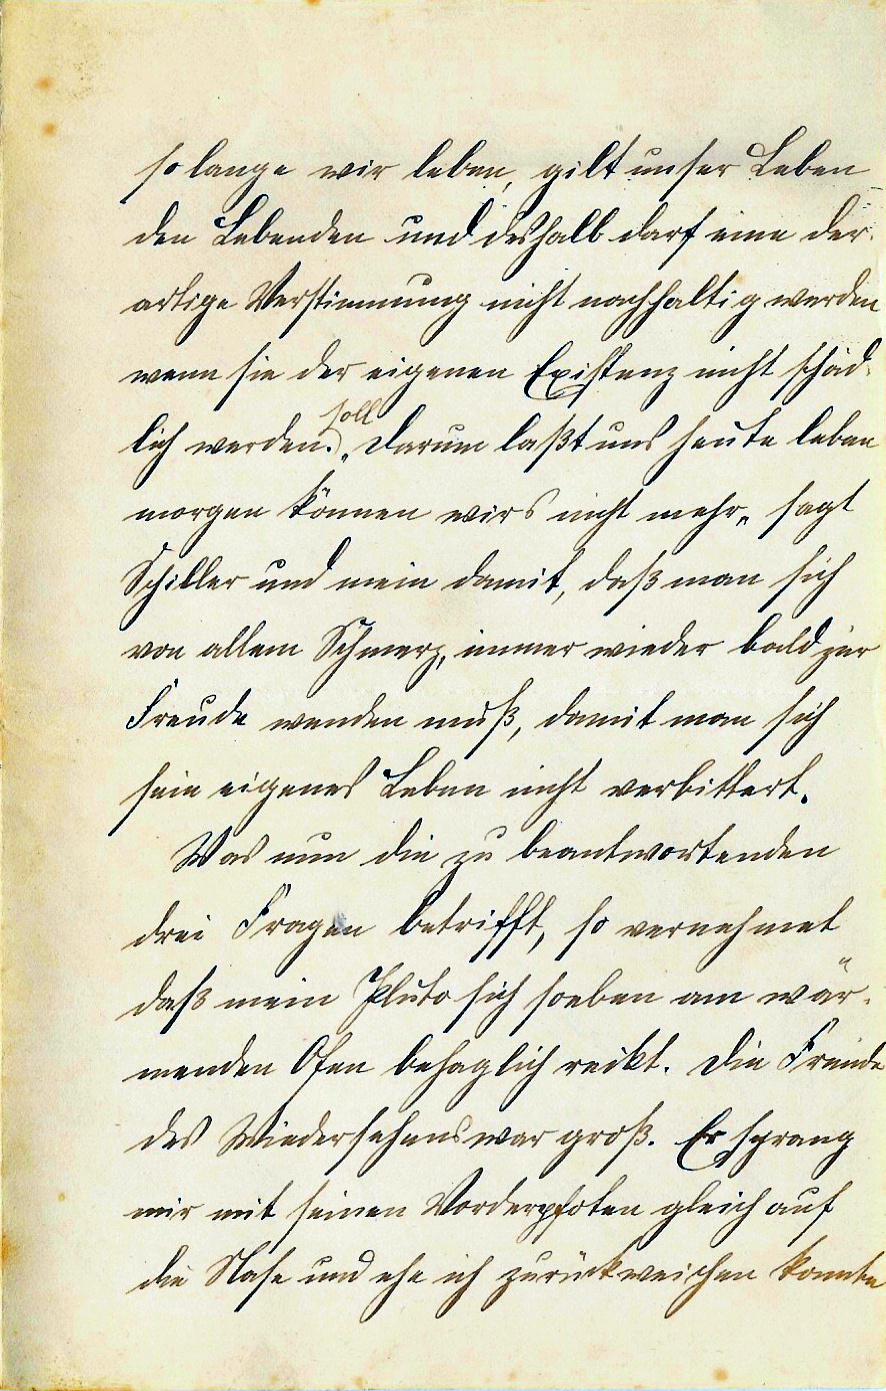 so lange wir leben, gilt unser Leben
den Lebenden und deshalb darf eine der-
artige Verstimmung nicht nachhaltig werden
wenn sie der eigenen Existenz nicht schäd-
lich werden soll. „Darum laßt uns heute leben
morgen können wirs nicht mehr„ sagt
Schiller und mein damit, daß man sich
von allem Schmerz, immer wieder bald zur
Freude wenden muß, damit man sich
sein eigenes Leben nicht verbittert.
Was nun die zu beantwortenden
drei Fragen betrifft, so vernehmet
daß mein Pluto sich soeben am wär-
menden Ofen behaglich reckt. Die Freude
des Wiedersehens war groß. Er sprang
mir mit seinen Vorderpfoten gleich auf
die Nase und ehe ich zurückweichen konnte